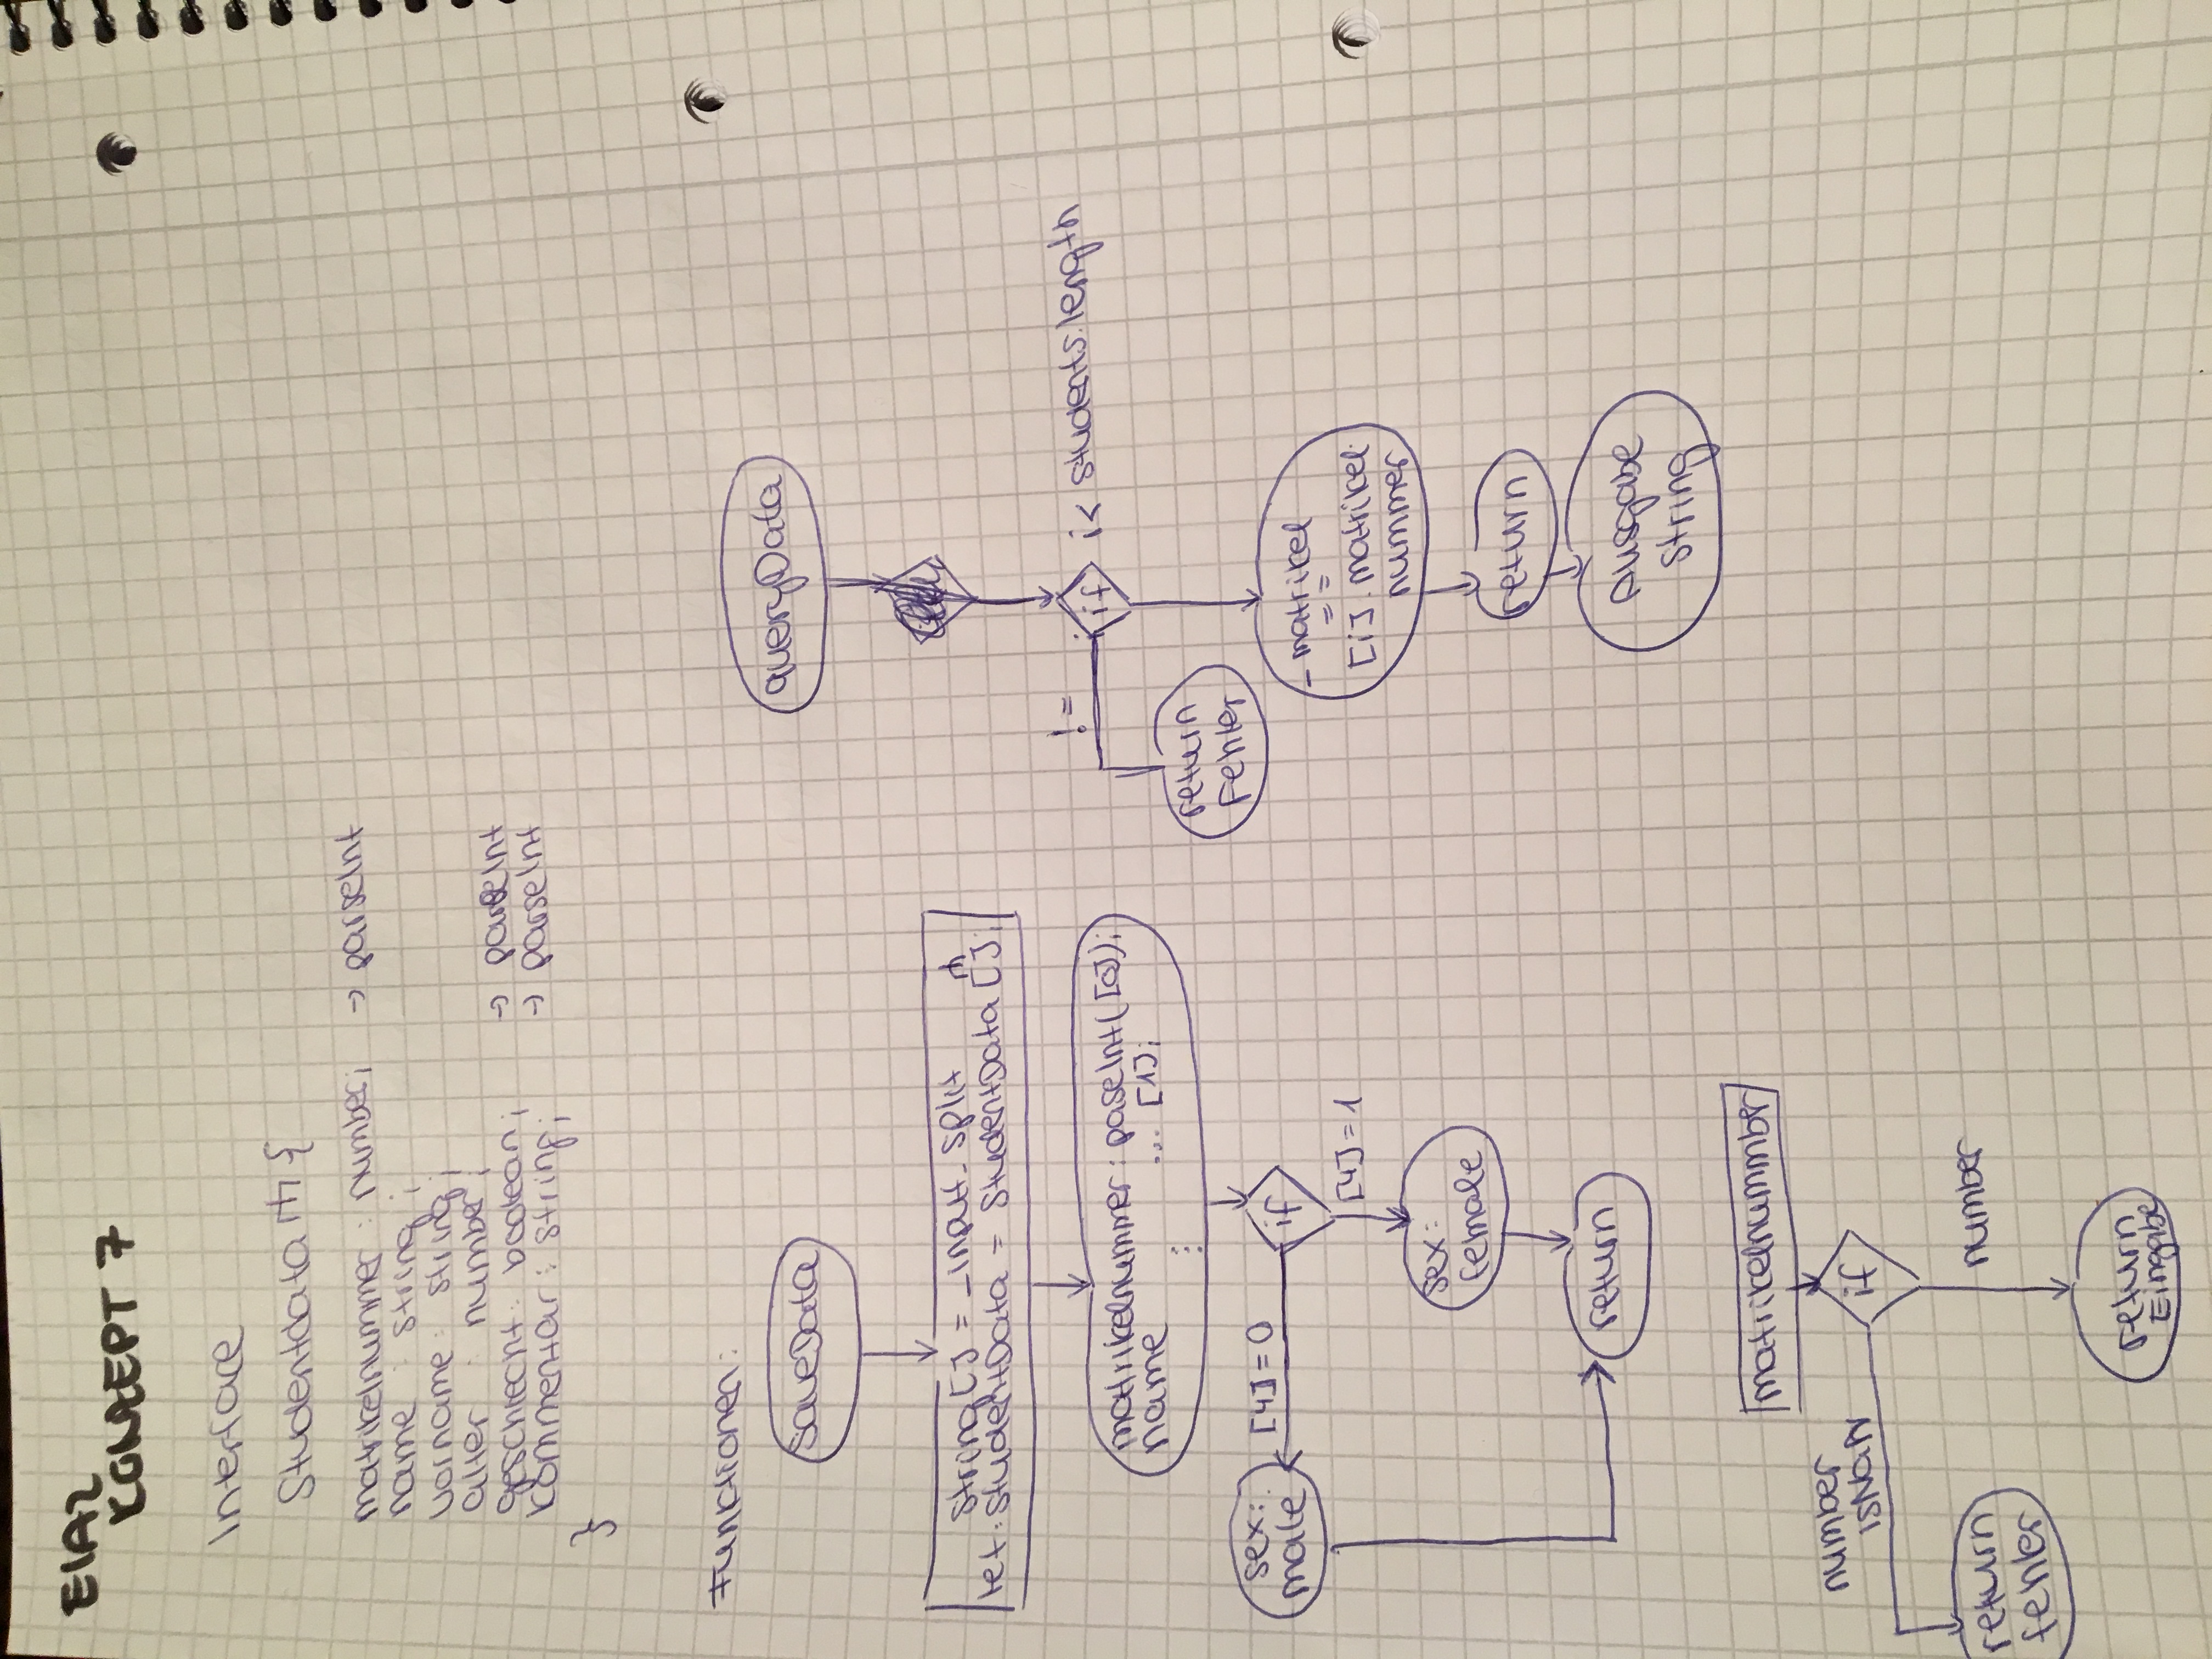 EIA2
KONZEPT 7
Interface
Studentdata {
matrikelnummer : number; → parseInt
name : string;
vorname : string;
alter : number;
geschlecht : boolean; → parseInt
kommentar : string; → parseInt
}
Funktionen:
saveData
string[] = _input_ split
let : studentData = StudentData [];
matrikelnummer : paseInt([0]);
name ... [1];
⋮
if
[4] = 0
sex:
male
[4] = 1
sex:
female
return
matrikelnummber
if
number
isNaN
return
fehler
number
return
Eingabe
queryData
if
i < students.length
! =
return
Fehler
_matrikel
= =
[i]. matrikel
nummer
return
Ausgabe
string